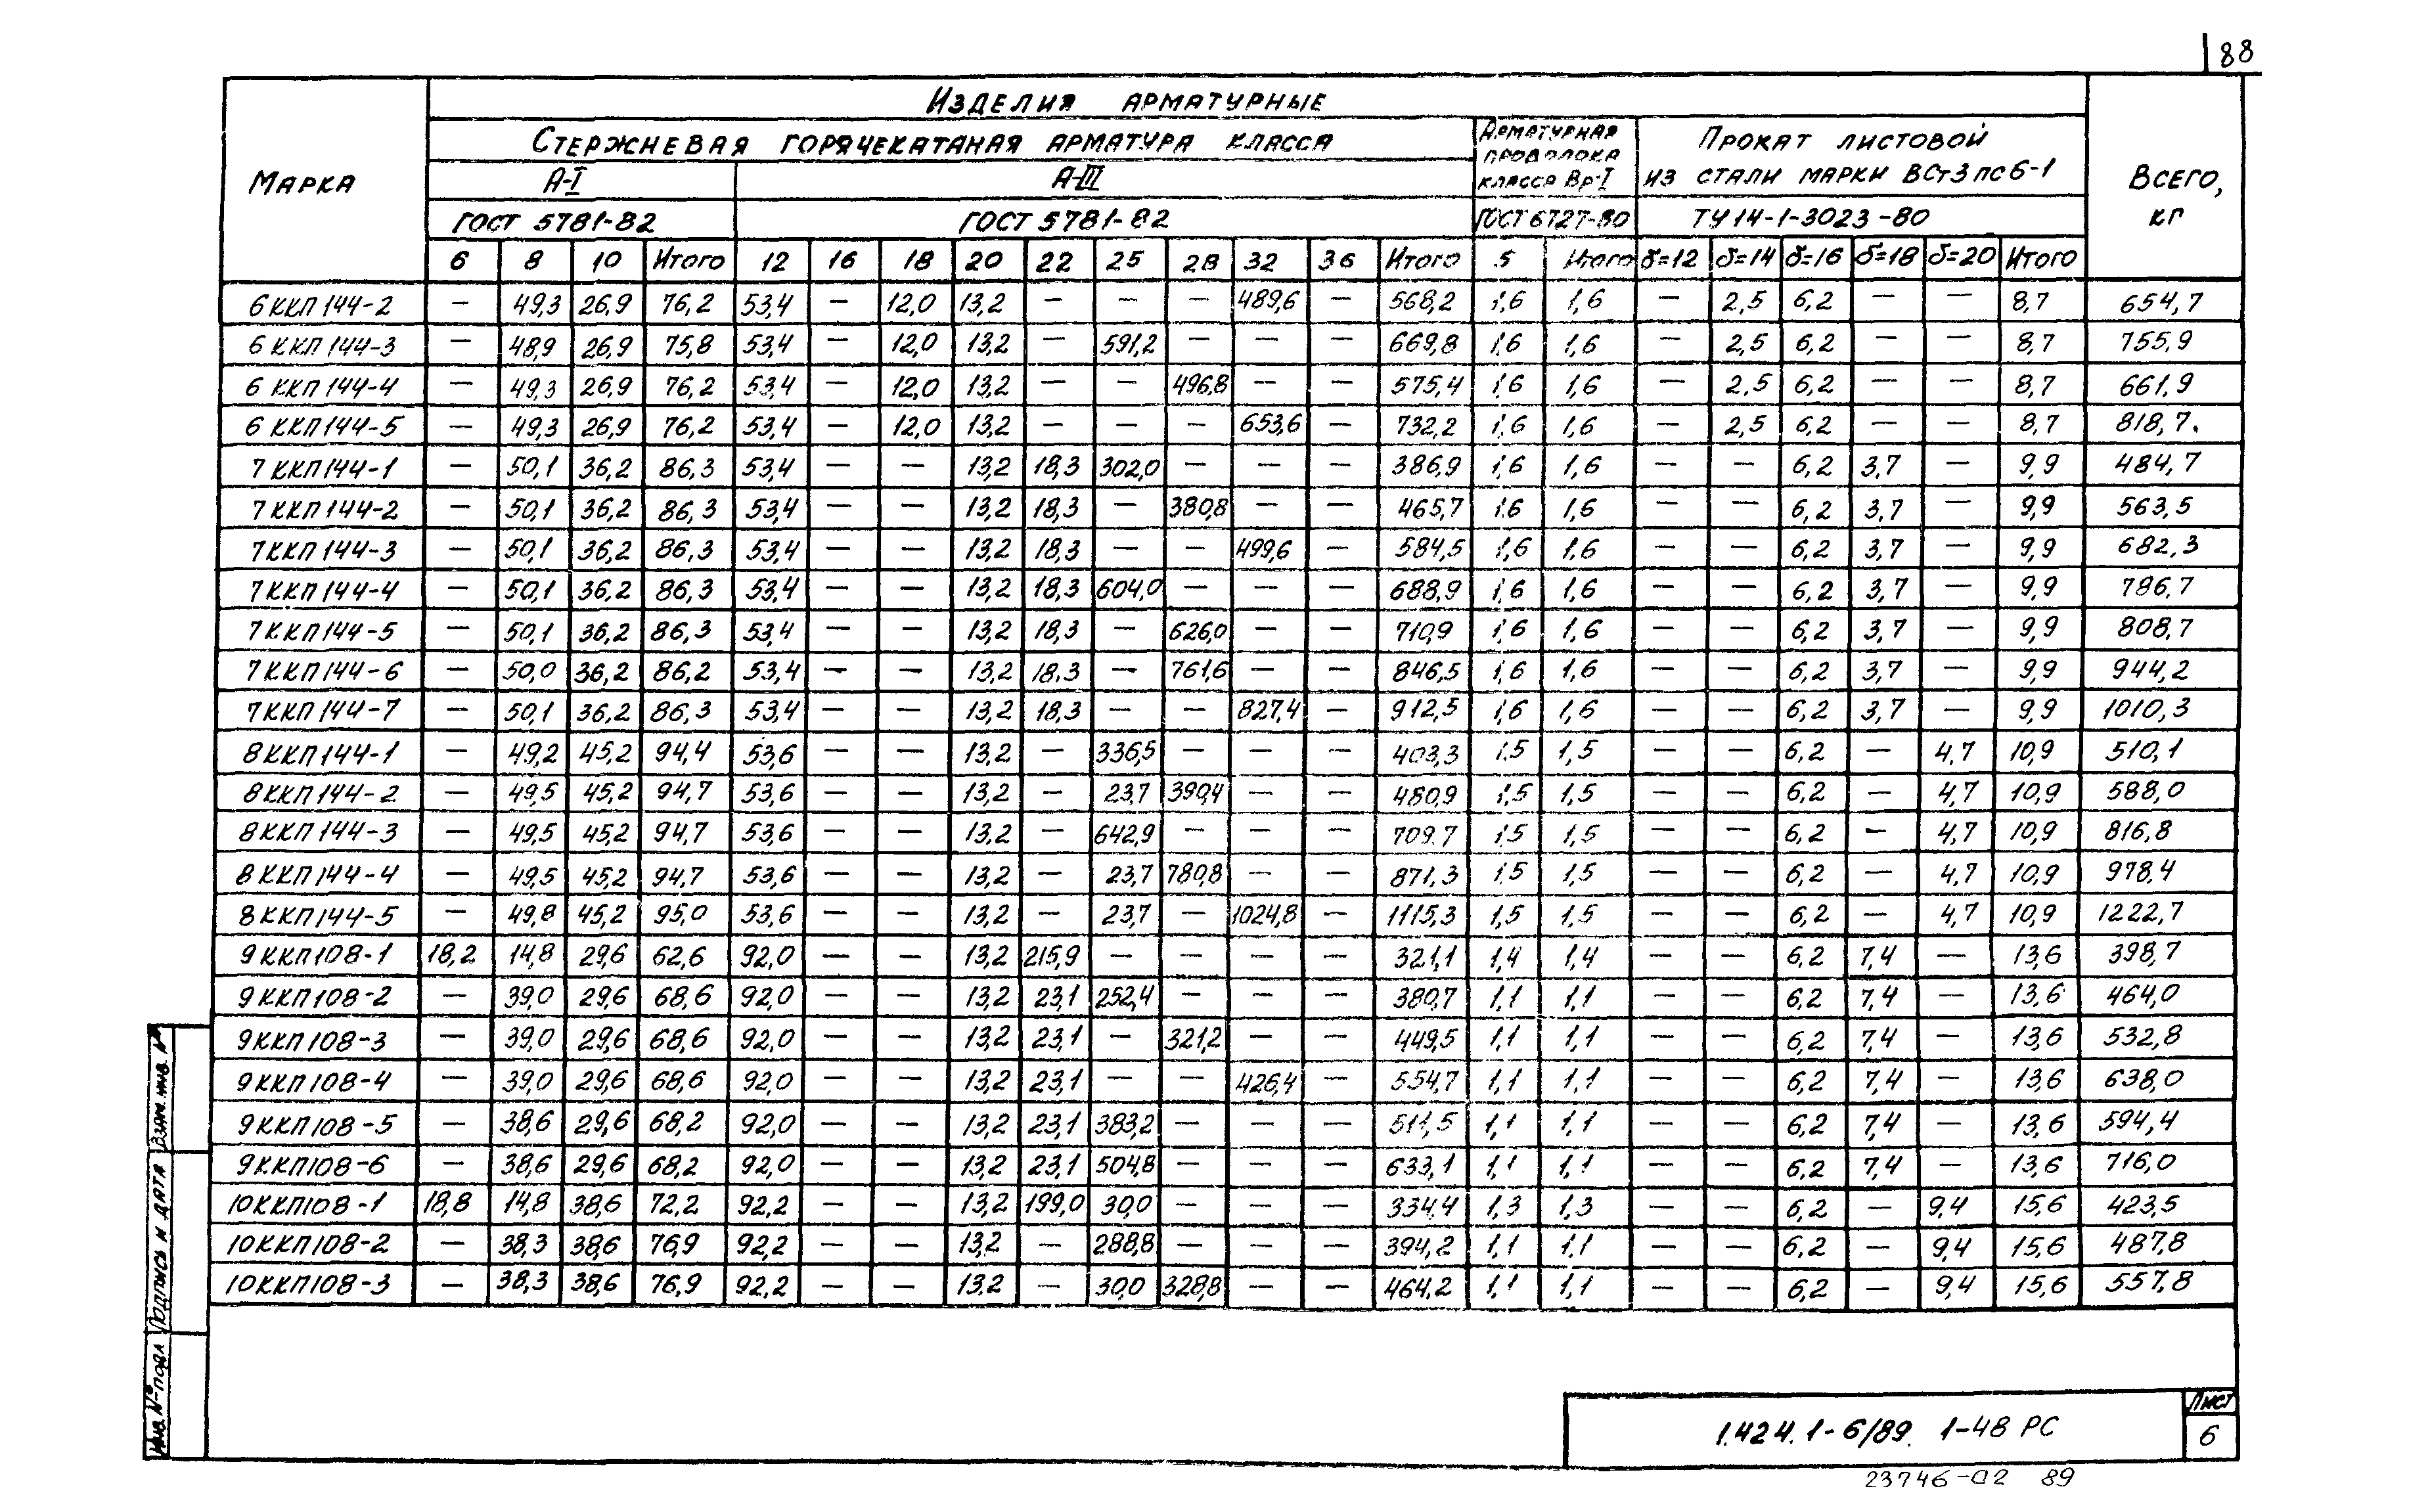 88
Изделия арматурные
Марка
Стержневая горячекатаная арматура класса
Арматурная проволока класса Вр-I
Прокат листовой из стали марки ВСт3пс6-1
Всего, кг
А-I А-III
ГОСТ 5781-82 ГОСТ 5781-82 ГОСТ 6727-80 ТУ 14-1-3023-80
6 8 10 Итого 12 16 18 20 22 25 28 32 36 Итого 5 Итого δ=12 δ=14 δ=16 δ=18 δ=20 Итого
6ККП144-2 — 49,3 26,9 76,2 53,4 — 12,0 13,2 — — — 489,6 — 568,2 1,6 1,6 — 2,5 6,2 — — 8,7 654,7
6ККП144-3 — 48,9 26,9 75,8 53,4 — 12,0 13,2 — 591,2 — — — 669,8 1,6 1,6 — 2,5 6,2 — — 8,7 755,9
6ККП144-4 — 49,3 26,9 76,2 53,4 — 12,0 13,2 — — 496,8 — — 575,4 1,6 1,6 — 2,5 6,2 — — 8,7 661,9
6ККП144-5 — 49,3 26,9 76,2 53,4 — 12,0 13,2 — — — 653,6 — 732,2 1,6 1,6 — 2,5 6,2 — — 8,7 818,7.
7ККП144-1 — 50,1 36,2 86,3 53,4 — — 13,2 18,3 302,0 — — — 386,9 1,6 1,6 — — 6,2 3,7 — 9,9 484,7
7ККП144-2 — 50,1 36,2 86,3 53,4 — — 13,2 18,3 — 380,8 — — 465,7 1,6 1,6 — — 6,2 3,7 — 9,9 563,5
7ККП144-3 — 50,1 36,2 86,3 53,4 — — 13,2 18,3 — — 499,6 — 584,5 1,6 1,6 — — 6,2 3,7 — 9,9 682,3
7ККП144-4 — 50,1 36,2 86,3 53,4 — — 13,2 18,3 604,0 — — — 688,9 1,6 1,6 — — 6,2 3,7 — 9,9 786,7
7ККП144-5 — 50,1 36,2 86,3 53,4 — — 13,2 18,3 — 626,0 — — 710,9 1,6 1,6 — — 6,2 3,7 — 9,9 808,7
7ККП144-6 — 50,0 36,2 86,2 53,4 — — 13,2 18,3 — 761,6 — — 846,5 1,6 1,6 — — 6,2 3,7 — 9,9 944,2
7ККП144-7 — 50,1 36,2 86,3 53,4 — — 13,2 18,3 — — 827,4 — 912,5 1,6 1,6 — — 6,2 3,7 — 9,9 1010,3
8ККП144-1 — 49,2 45,2 94,4 53,6 — — 13,2 — 336,5 — — — 403,3 1,5 1,5 — — 6,2 — 4,7 10,9 510,1
8ККП144-2 — 49,5 45,2 94,7 53,6 — — 13,2 — 23,7 390,4 — — 480,9 1,5 1,5 — — 6,2 — 4,7 10,9 588,0
8ККП144-3 — 49,5 45,2 94,7 53,6 — — 13,2 — 642,9 — — — 709,7 1,5 1,5 — — 6,2 — 4,7 10,9 816,8
8ККП144-4 — 49,5 45,2 94,7 53,6 — — 13,2 — 23,7 780,8 — — 871,3 1,5 1,5 — — 6,2 — 4,7 10,9 978,4
8ККП144-5 — 49,8 45,2 95,0 53,6 — — 13,2 — 23,7 — 1024,8 — 1115,3 1,5 1,5 — — 6,2 — 4,7 10,9 1222,7
9ККП108-1 18,2 14,8 29,6 62,6 92,0 — — 13,2 215,9 — — — — 321,1 1,4 1,4 — — 6,2 7,4 — 13,6 398,7
9ККП108-2 — 39,0 29,6 68,6 92,0 — — 13,2 23,1 252,4 — — — 380,7 1,1 1,1 — — 6,2 7,4 — 13,6 464,0
9ККП108-3 — 39,0 29,6 68,6 92,0 — — 13,2 23,1 — 321,2 — — 449,5 1,1 1,1 — — 6,2 7,4 — 13,6 532,8
9ККП108-4 — 39,0 29,6 68,6 92,0 — — 13,2 23,1 — — 426,4 — 554,7 1,1 1,1 — — 6,2 7,4 — 13,6 638,0
9ККП108-5 — 38,6 29,6 68,2 92,0 — — 13,2 23,1 383,2 — — — 511,5 1,1 1,1 — — 6,2 7,4 — 13,6 594,4
9ККП108-6 — 38,6 29,6 68,2 92,0 — — 13,2 23,1 504,8 — — — 633,1 1,1 1,1 — — 6,2 7,4 — 13,6 716,0
10ККП108-1 18,8 14,8 38,6 72,2 92,2 — — 13,2 199,0 30,0 — — — 334,4 1,3 1,3 — — 6,2 — 9,4 15,6 423,5
10ККП108-2 — 38,3 38,6 76,9 92,2 — — 13,2 — 288,8 — — — 394,2 1,1 1,1 — — 6,2 — 9,4 15,6 487,8
10ККП108-3 — 38,3 38,6 76,9 92,2 — — 13,2 — 30,0 328,8 — — 464,2 1,1 1,1 — — 6,2 — 9,4 15,6 557,8
Взам. инв. №
Подпись и дата
Инв. № подл
1.424.1-6/89. 1-48 РС
Лист
6
23746-02 89